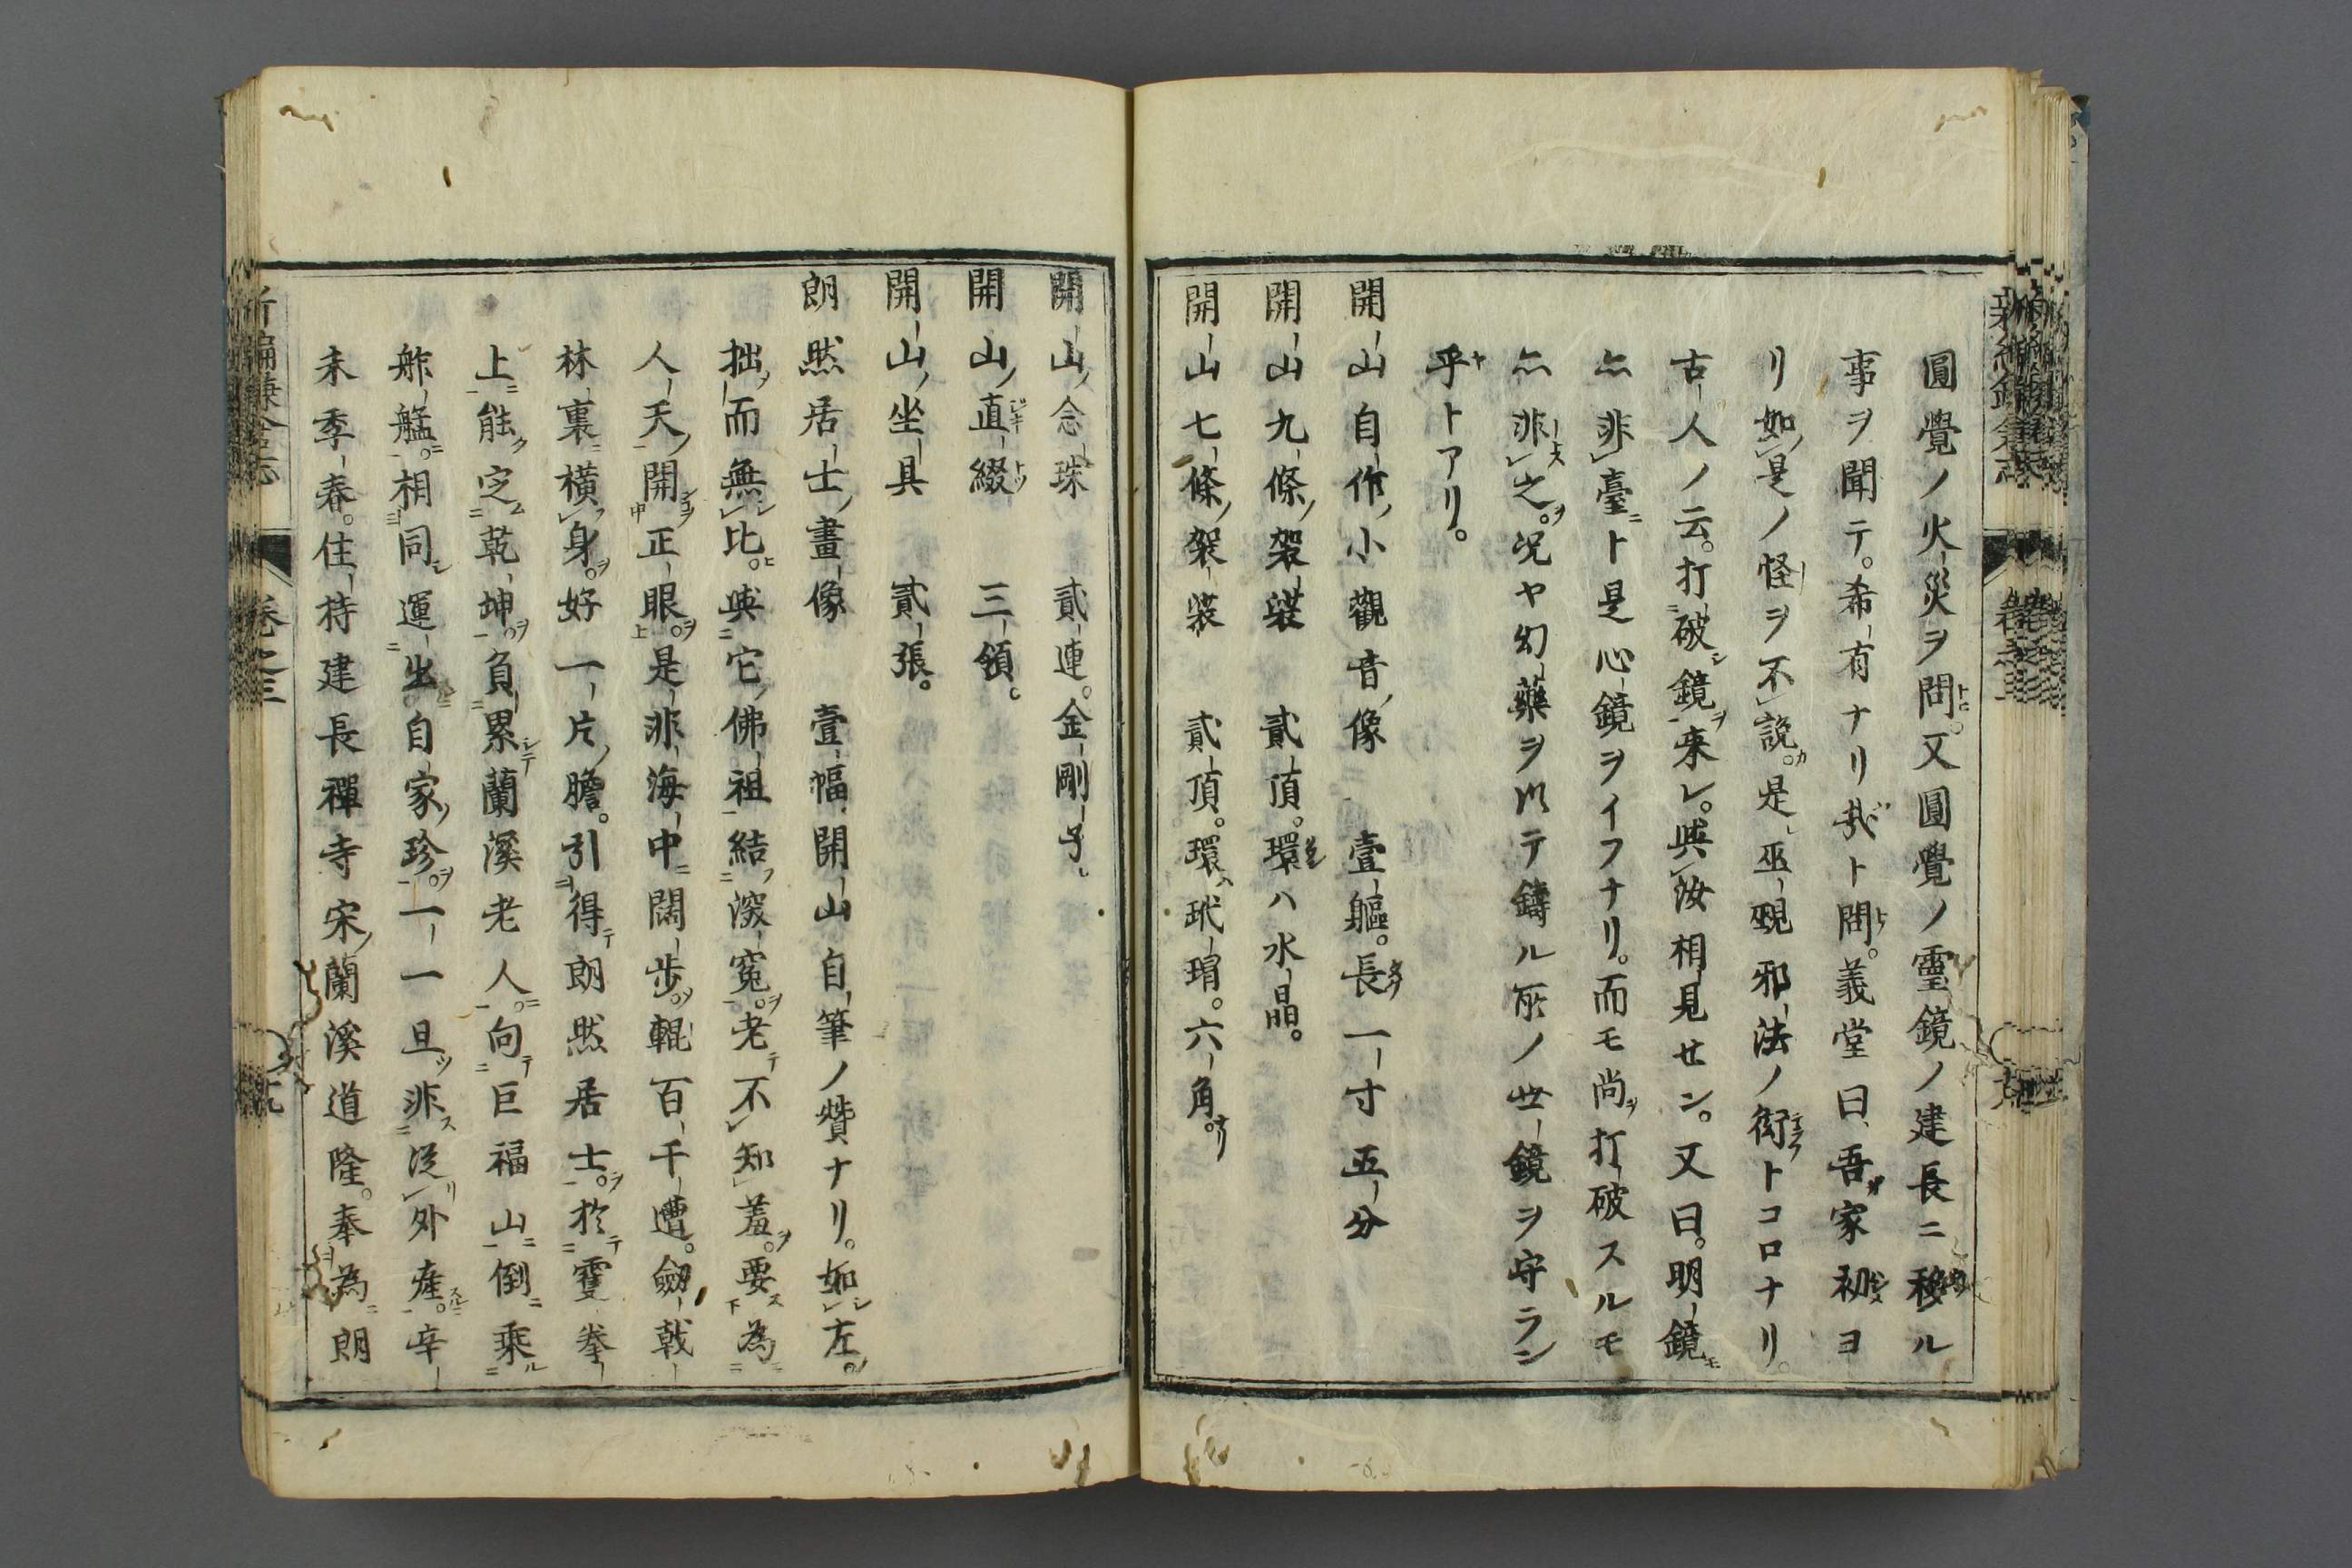 圓覺ノ火災ヲ問。又圓覺ノ靈鏡ノ建長ニ移ル
事ヲ聞テ。希有ナリ哉ト問。義堂曰、吾家初ヨ
リ如是ノ怪ヲ不說。是巫覡邪法ノ衒トコロナリ。
古人ノ云。打破鏡来レ。與汝相見せン。又曰。明鏡
亦非臺ト是心鏡ヲイフナリ。而モ尚打破スルモ
亦非之。况ヤ幻藥ヲ以テ鑄ル所ノ世鏡ヲ守ラン
乎トアリ。
開山自作小觀音像 壹軀。長一寸五分
開山九條袈裟 貳頂。環ハ水晶。
開山七條袈裟 貳頂。環玳瑁。六角。
開山念珠 貳連。金剛子。
開山直綴 三領。
開山坐具 貳張。
朗然居士畫像 壹幅開山自筆ノ賛ナリ。如左。
拙而無比。與它佛祖結深寃。老不知羞。要為
人天開正眼。是非海中闊步。輥百千遭。劔戟
林裏橫身。好一片膽。引得朗然居士。於靈拳
上能定乾坤。負累蘭溪老人。向巨福山倒乘
舴艋。相同運出自家珍。一一且非從外產。辛
未季春。住持建長禪寺宋蘭溪道隆。奉為朗
新編鎌倉志 卷之三